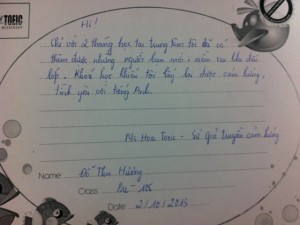 TOEIC
Hi!
Chỉ với 2 tháng học tại trung tâm tôi đã có
thêm được những người bạn mới, niềm vui khi đến
lớp. Khoá học khiến tôi lấy lại được cảm hứng,
tình yêu với tiếng Anh.
Ms Hoa Toeic - Sứ giả truyền cảm hứng
Name: Đỗ Thu Hương
Class Pre - 106
Date 2/10/2013